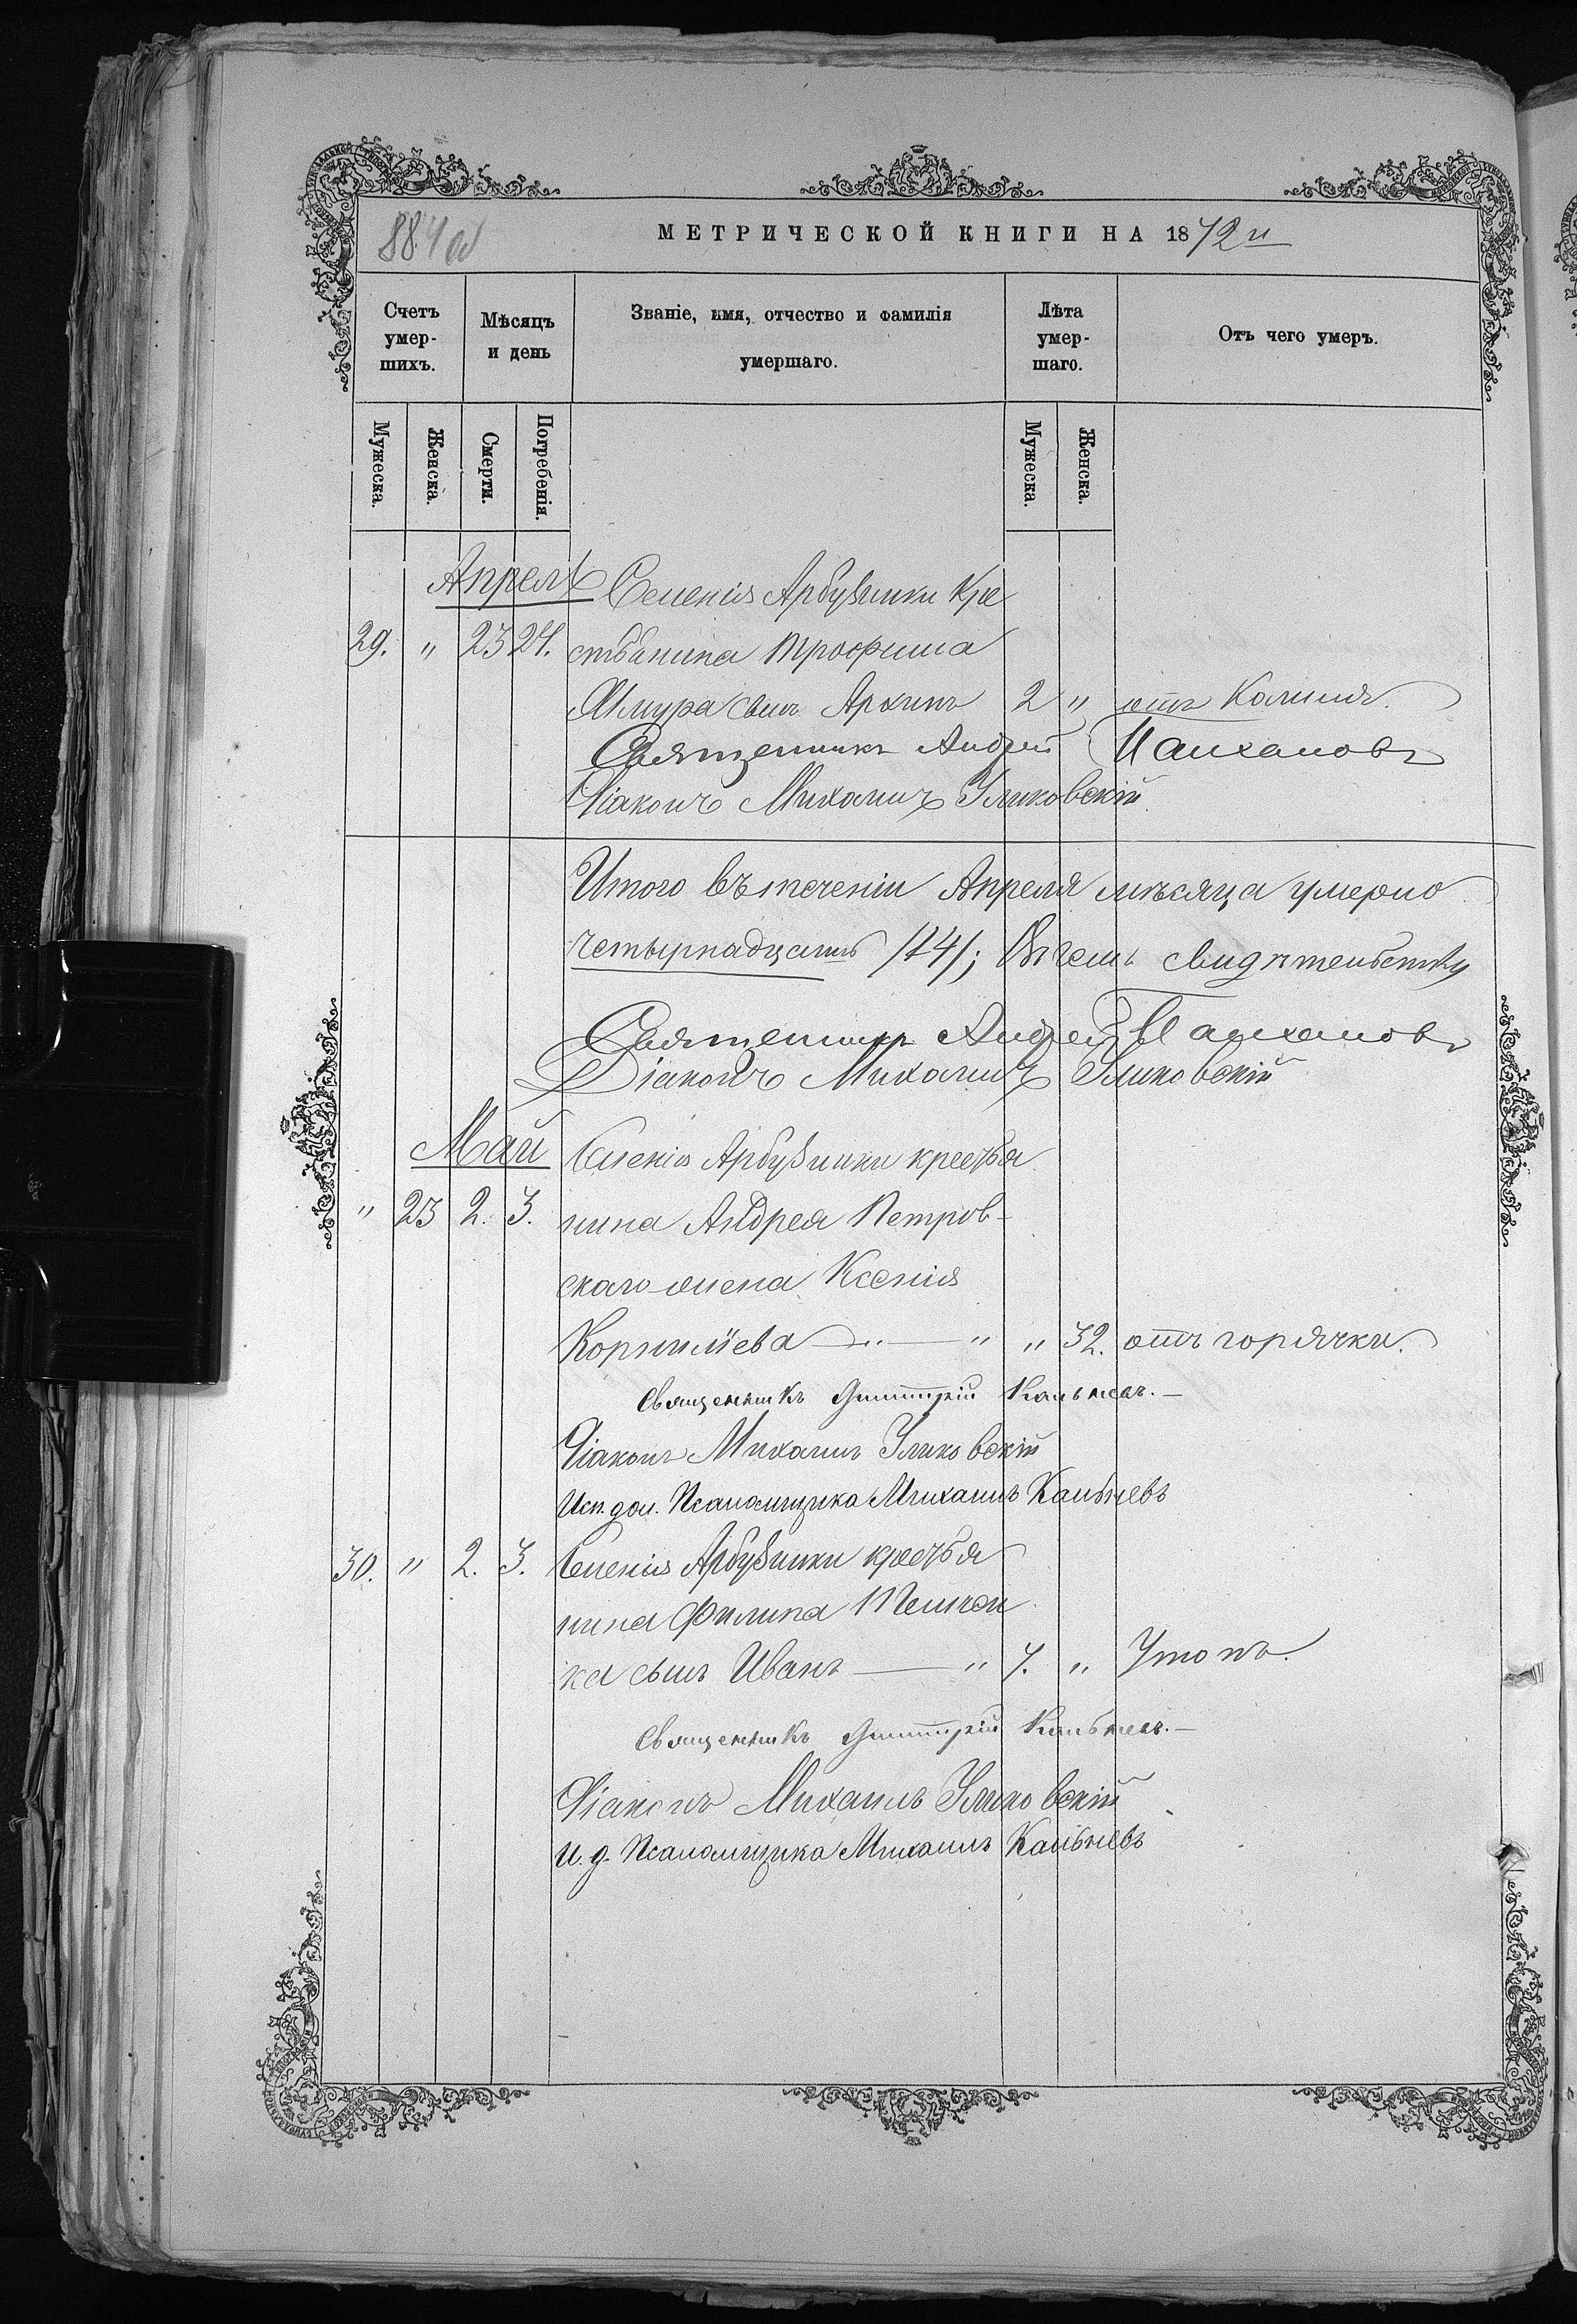 884
МЕТРИЧЕСКОЙ КНИГИ НА 1872
Счетъ умер- шихъ.
Мѣсяцъ и день
Званіе, имя, отчество и фамилія умершаго.
Лѣта умер- шаго.
Отъ чего умеръ.
Мужеска. Женска. Смерти. Погребенія. Мужеска. Женска.
Апрель Селенія Арбузинки Кре
29. " 23 24. стьянина Трофима
сынъ Архипъ 2 " отъ Кашля.
Священникъ Андрей
Діаконъ Михаилъ
Итого въ теченіи Апреля мѣсяца умерло
четырнадцать /14/; Въ чемъ свидѣтельству
Священникъ Андрей
Діаконъ Михаилъ
Май Селенія Арбузинки крестья
" 23 2. 3. нина Андрея Петров-
скаго жена Ксенія
Корнилiева — " — " " 32. отъ горячки.
Священникъ Димитрій Кальневъ. —
Діаконъ Михаилъ
Исп. дол. Псаломщика Михаилъ Кальневъ
30. " 2. 3. Селенія Арбузинки крестья
нина Филипа
ка сынъ Иванъ — " 7. " Утопъ.
Священникъ Димитрій Кальневъ. —
Діаконъ Михаилъ
И. д. Псаломщика Михаилъ Кальневъ